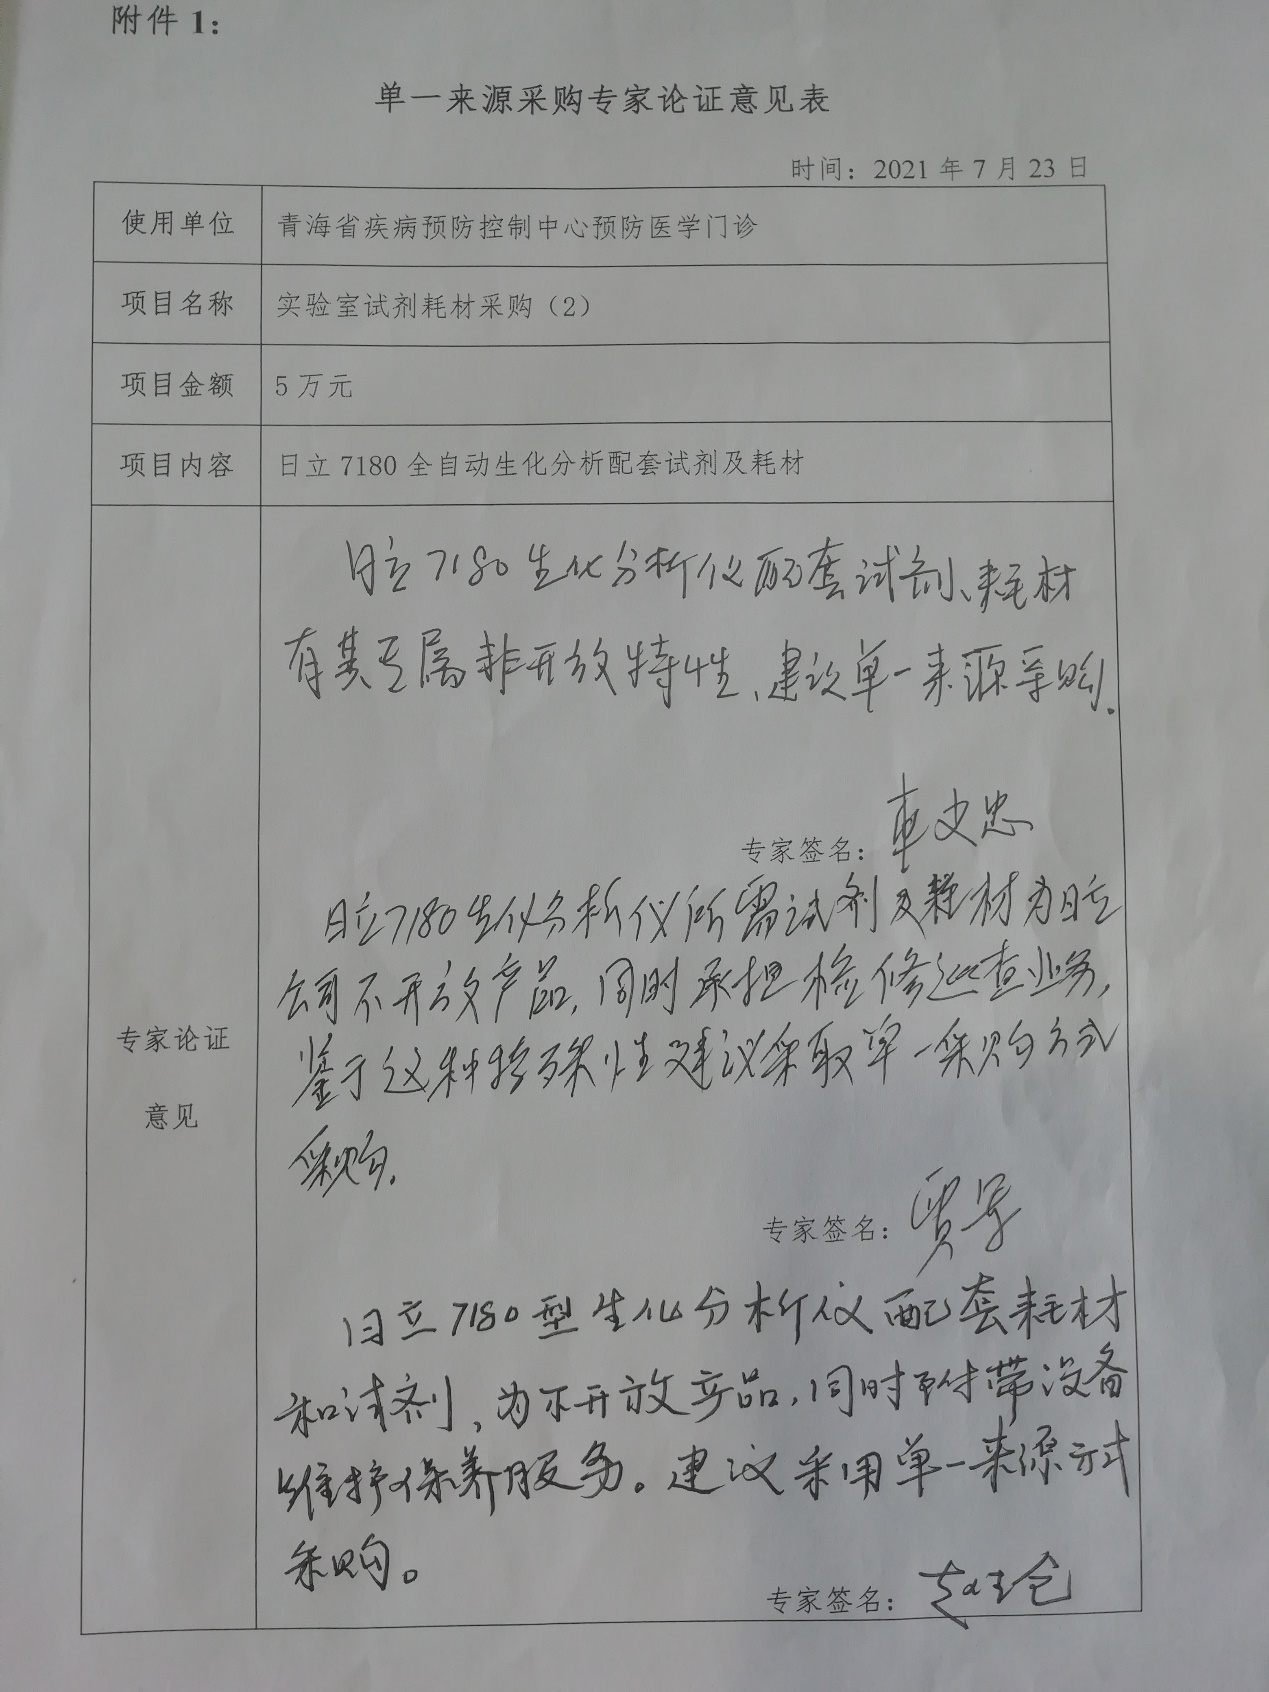 附件1：
单一来源采购专家论证意见表
时间：2021年7月23日
使用单位 青海省疾病预防控制中心预防医学门诊
项目名称 实验室试剂耗材采购（2）
项目金额 5万元
项目内容 日立7180全自动生化分析配套试剂及耗材
专家论证
意见
日立7180生化分析仪配套试剂、耗材
有其专属非开放特性、建议单一来源采购.
专家签名：车文忠
日立7180生化分析仪所需试剂及耗材为日立
公司不开放产品,同时承担检修巡查业务,
鉴于这种特殊性建议采取单一采购方式
采购.
专家签名：
日立7180型生化分析仪配套耗材
和试剂、为不开放产品,同时附带设备
维护保养服务。建议采用单一来源方式
采购。
专家签名：